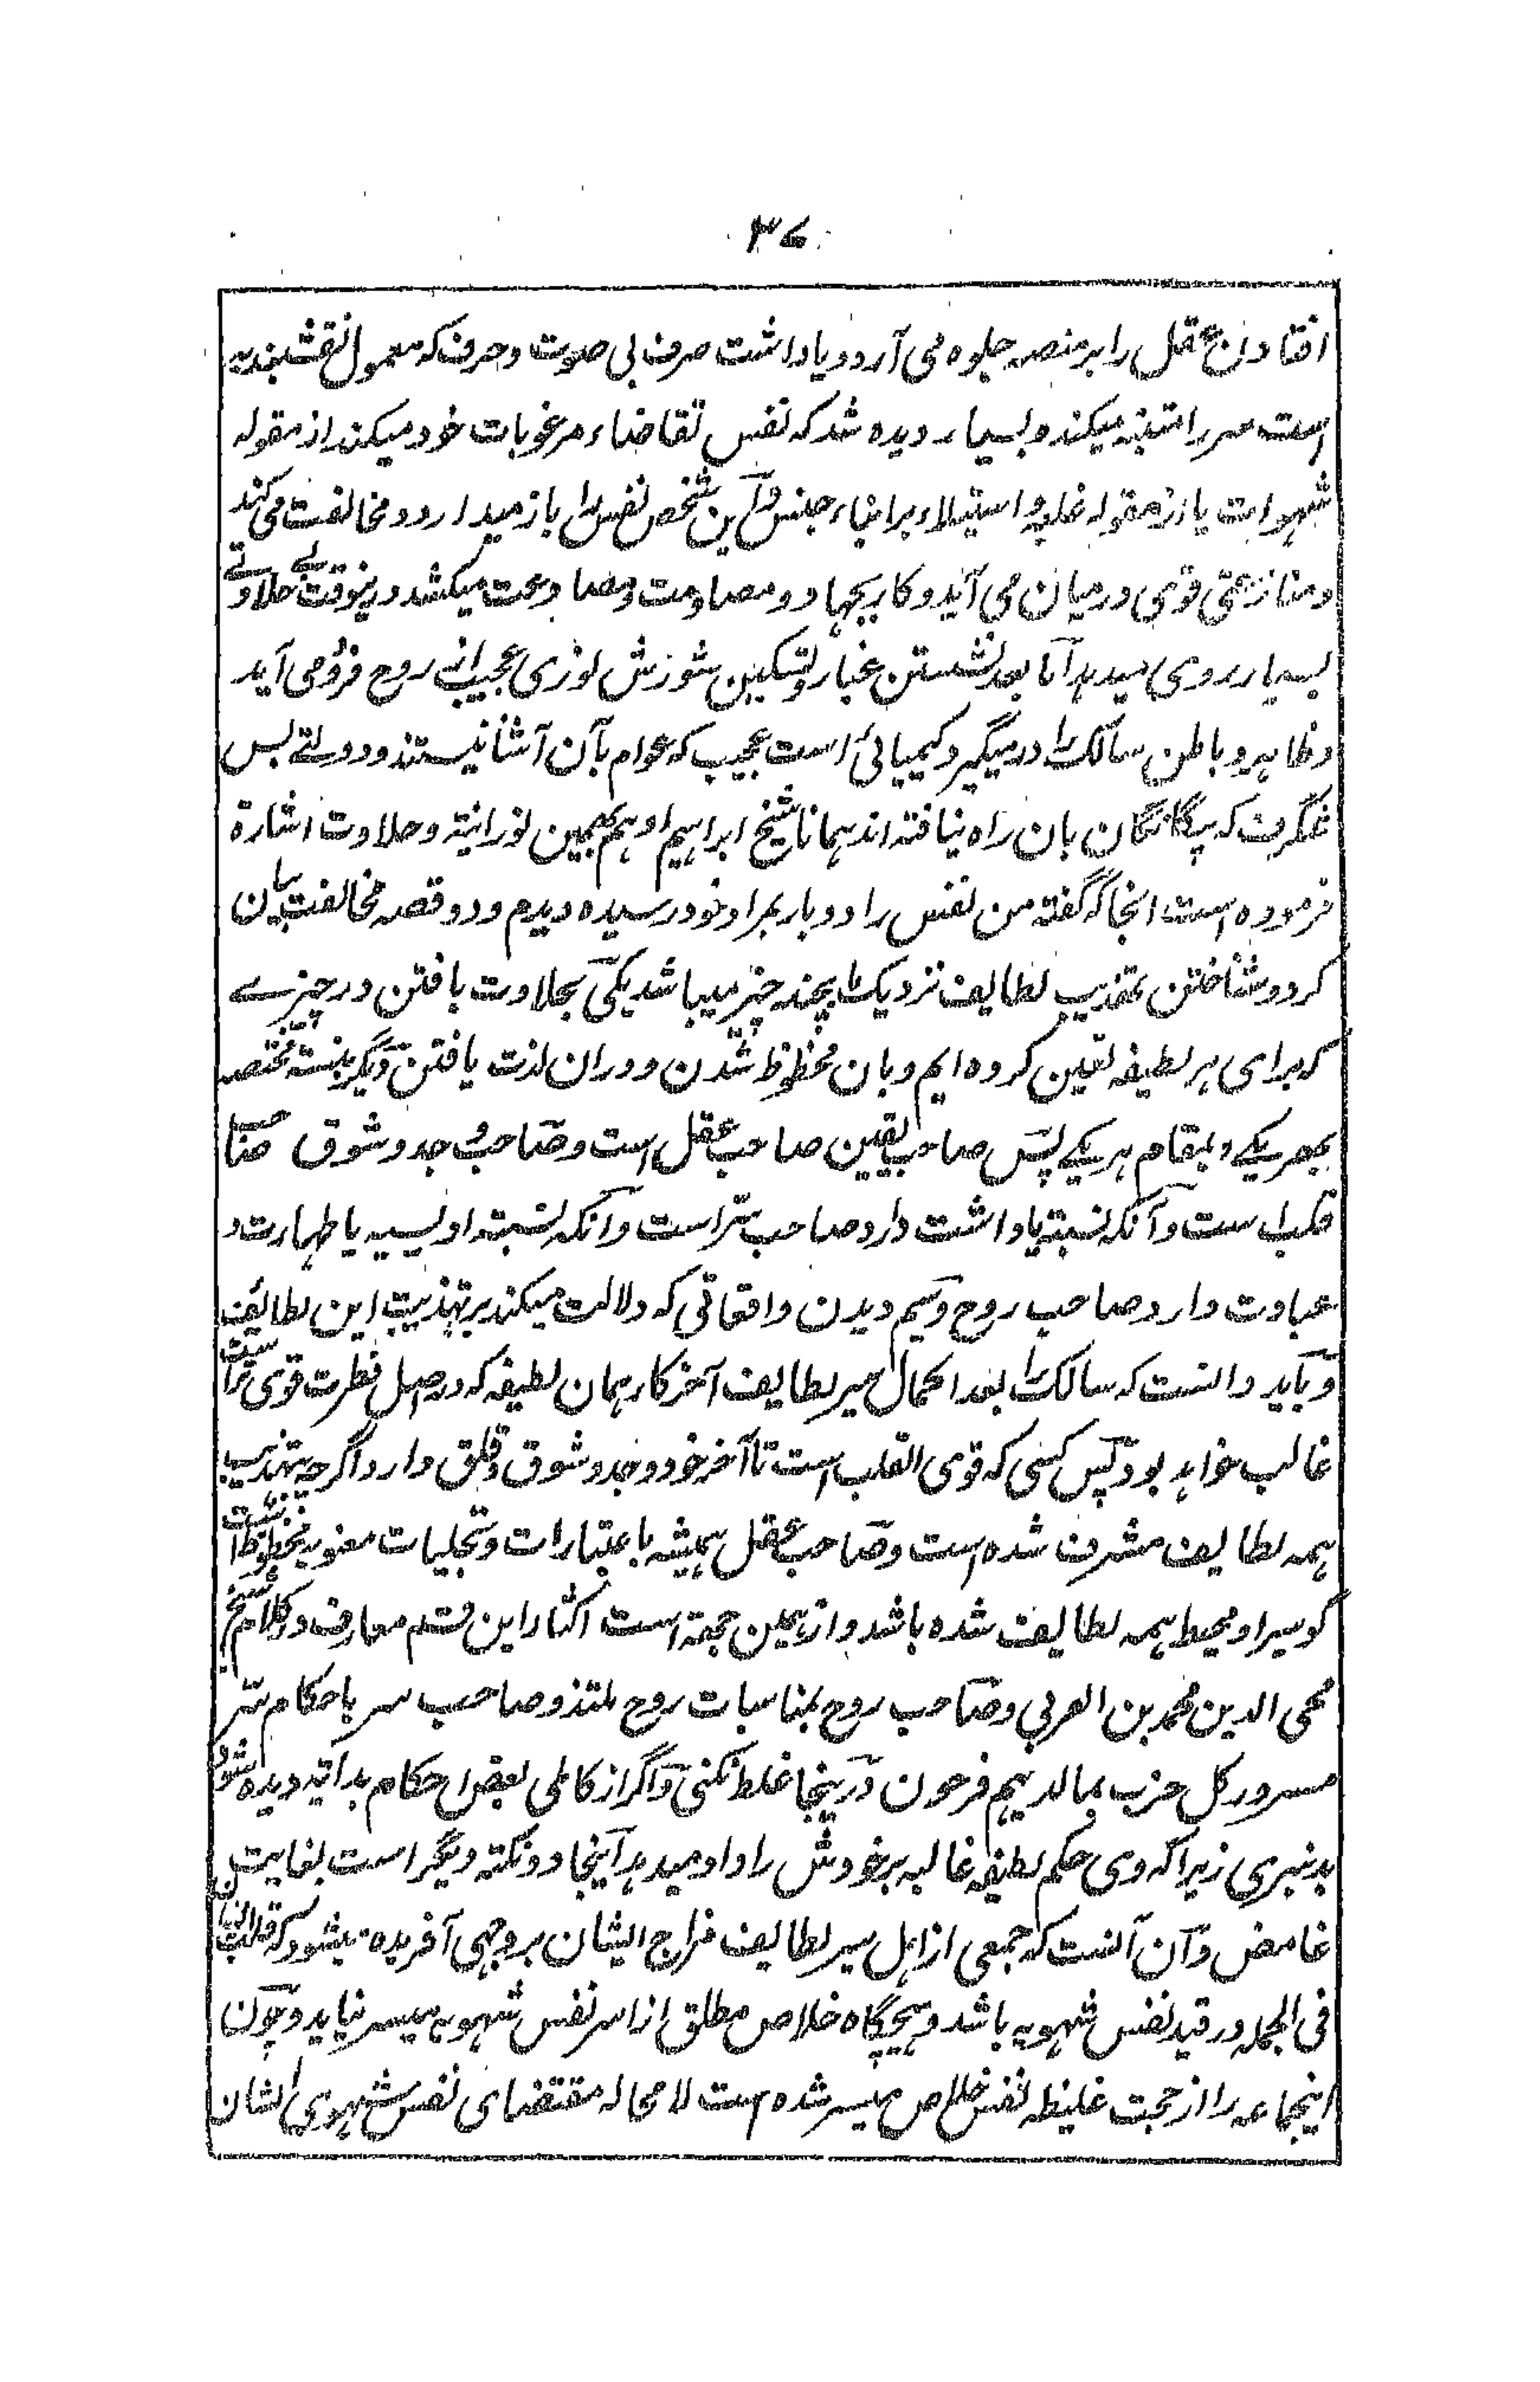 ۳۷
افتادن عقل را بر منصه جلوه می آرد و یاد داشت صرف بی صوت و حرف که معمول نقشبندیه
است سر را متنبه میکند و بسیار دیده شد که نفس تقاضاء مرغوبات خود میکند از مقوله
شهوات یا از مقوله غلبه و استیلاء بر ابناء جنس و این شخص نفس را باز میدارد و مخالفت می کند
و منازعتی قوی درمیان می آید و کار بجهاد و مصادمت و مصارعت میکشد درینوقت بے حلاوتے
بسیار روی میدهد اما بعد نشستن غبار و تسکین شورش نوری عجیب از روح فرو می آید
و ظاهر و باطن سالک را درمیگیرد کیمیائی است عجیب که عوام بآن آشنا نیستند و دولتے بس
شگرف که بیگانگان بان راه نیافته اند همانا شیخ ابراهیم ادهم بهمین نورانیة و حلاوت اشارة
فرموده است انجا که گفته من نفس را دو بار بمراد خود رسیده دیدم و دو قصه مخالفت بیان
کرد و شناختن تهذیب لطایف نزدیک ما بچند چیز میباشد یکی بحلاوت یافتن در چیزے
که برای هر لطیفه تعین کرده ایم و بان محظوظ شدن و دران لذت یافتن دیگر بنسبته مختصه
بهر یکے و بمقام هر یکے پس صاحب یقین صاحب عقل است و صاحب وجد و شوق صاحب
قلب است و آنکه نسبته یاد داشت دارد صاحب سر است و آنکه نسبته اویسیه یا طهارت و
عبادت دارد صاحب روح و سیم دیدن واقعاتی که دلالت میکند بر تهذیب این لطائف
و باید دانست که سالک را بعد اکمال سیر لطایف آخر کار همان لطیفه که در اصل فطرت قوی تر است
غالب خواهد بود پس کسی که قوی القلب است تا آخر خود وجد و شوق و قلق دارد اگرچه بتهذیب
همه لطایف مشرف شده است و صاحب عقل همیشه با عتبارات و تجلیات معنویه محظوظ است
گو سیر او محیط همه لطایف شده باشد و از همین جهته است اکثار این قسم معارف در کلام شیخ
محی الدین محمد بن العربی و صاحب روح بمناسبات روح ملتذ و صاحب سر باحکام سر
مسرور کل حزب بما لدیهم فرحون درینجا غلط نکنی و اگر از کاملی بعض احکام بدایة دیده شود
بد نبری زیرا که وی حکم لطیفه غالبه بر خودش را داد میدهد اینجا دو نکته دیگر است بغایت
غامض و آن آنست که جمعی از اهل سیر لطایف مزاج ایشان بروجهی آفریده میشود که قلب ایشان
فی الجمله در قید نفس شهویه باشد و هیچگاه خلاص مطلق از اسر نفس شهویه میسر نیاید و چون
اینجماعه را از حجبت غلیظه نفس خلاص میسر شده است لا محاله مقتضای نفس شهوی ایشان